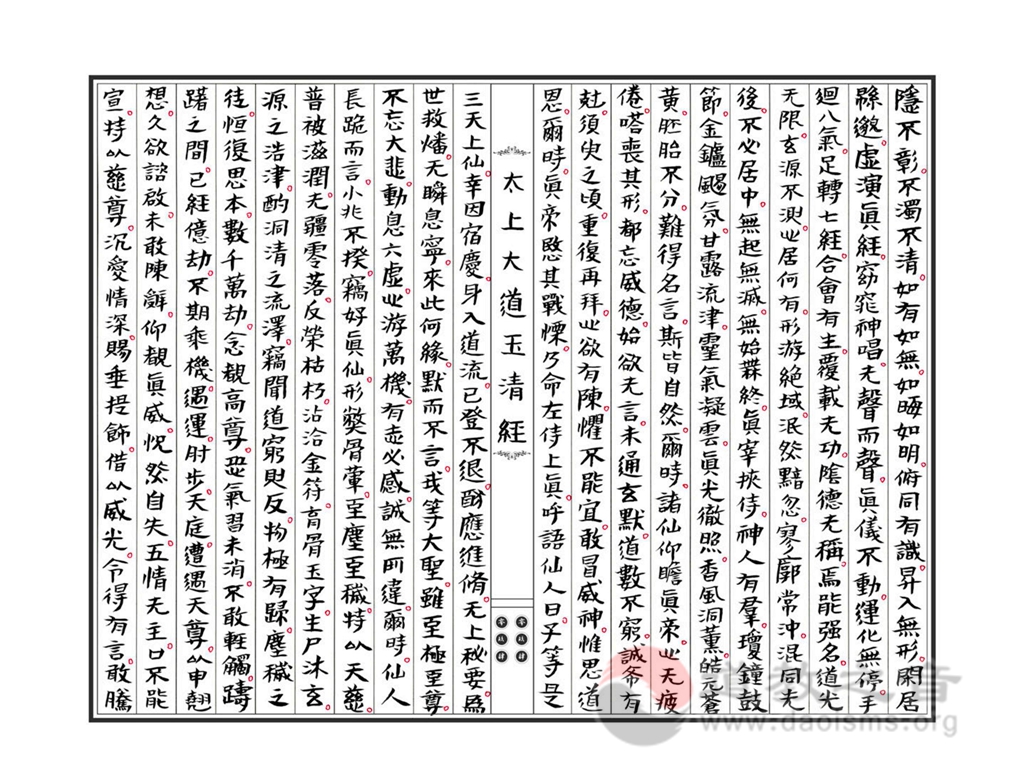 隱不彰不濁不清如有如無如晦如明俯同有識昇入無形閑居
緜邈虛演眞經窈窕神唱无聲而聲眞儀不動運化無停手
迴八氣足轉七經合會有主覆載无功陰德无稱焉能强名道光
无限玄源不測㞢居何有形游絕域泯然黯忽寥廓常沖混同无
後不必居中無起無滅無始無終眞宰挾侍神人有羣瓊鐘鼓
節金鑪颺氛甘露流津靈氣凝雲眞光徹照香風洞薰皓元蒼
黄胚胎不分難得名言斯皆自然爾時諸仙仰瞻眞帝㞢无疲
倦嗒喪其形都忘威德始欲无言未通玄默道數不窮誠希有
尅須臾之頃重復再拜㞢欲有陳懼不能宜敢冒威神惟思道
思爾時眞帝愍其戰慄乃命左侍上眞呼語仙人曰子等是
太上大道玉清經
三天上仙幸因宿慶身入道流已登不退酬應進脩无上秘要爲
世救燔无瞬息寧來此何緣默而不言我等大聖雖至極至尊
不忘大悲動息六虛㞢游萬機有志必感誠無所違爾時仙人
長跪而言小兆不揆竊好眞仙形獘骨葷至塵至穢特以天慈
普被滋潤无疆零落反榮枯朽沾洽金符育骨玉字生尸沐玄
源之浩津酌洞清之流澤竊聞道窮則反物極有歸塵穢之
徒恒復思本數千萬劫念覩高尊惡氣習未消不敢輕觸躊
躇之間已經億劫不期乘機遇運肘步天庭遭遇天尊㠯申翹
想久欲諮啟未敢陳辭仰覩眞威怳然自失五情无主口不能
宣持以慈尊沉愛情深賜垂提飾借以威光令得有言敢騰
零玖肆
零玖肆
道教之音
www.daoisms.org